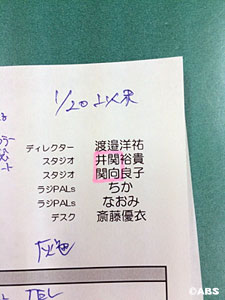 1/20 以来
ディレクター 渡邉洋祐
スタジオ 井関裕貴
スタジオ 関向良子
ラジPALs ちか
ラジPALs なおみ
デスク 斎藤優衣
TEL
©ABS